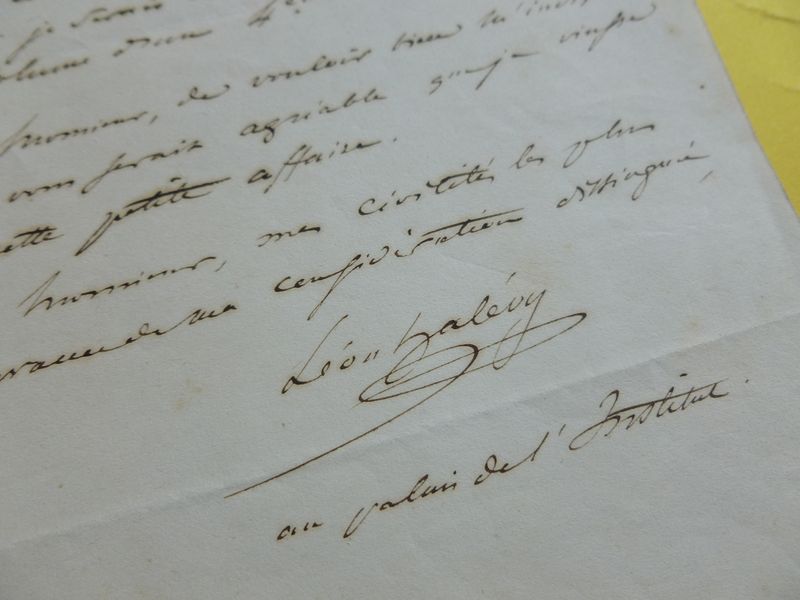 je serais
volume d'un 4e
monsieur, de vouloir bien m'indi
vous serait agréable que je vinsse
cette petite affaire.
monsieur, mes civilités les plus
de ma considération distinguée,
Léon halévy
au palais de l'Institut.